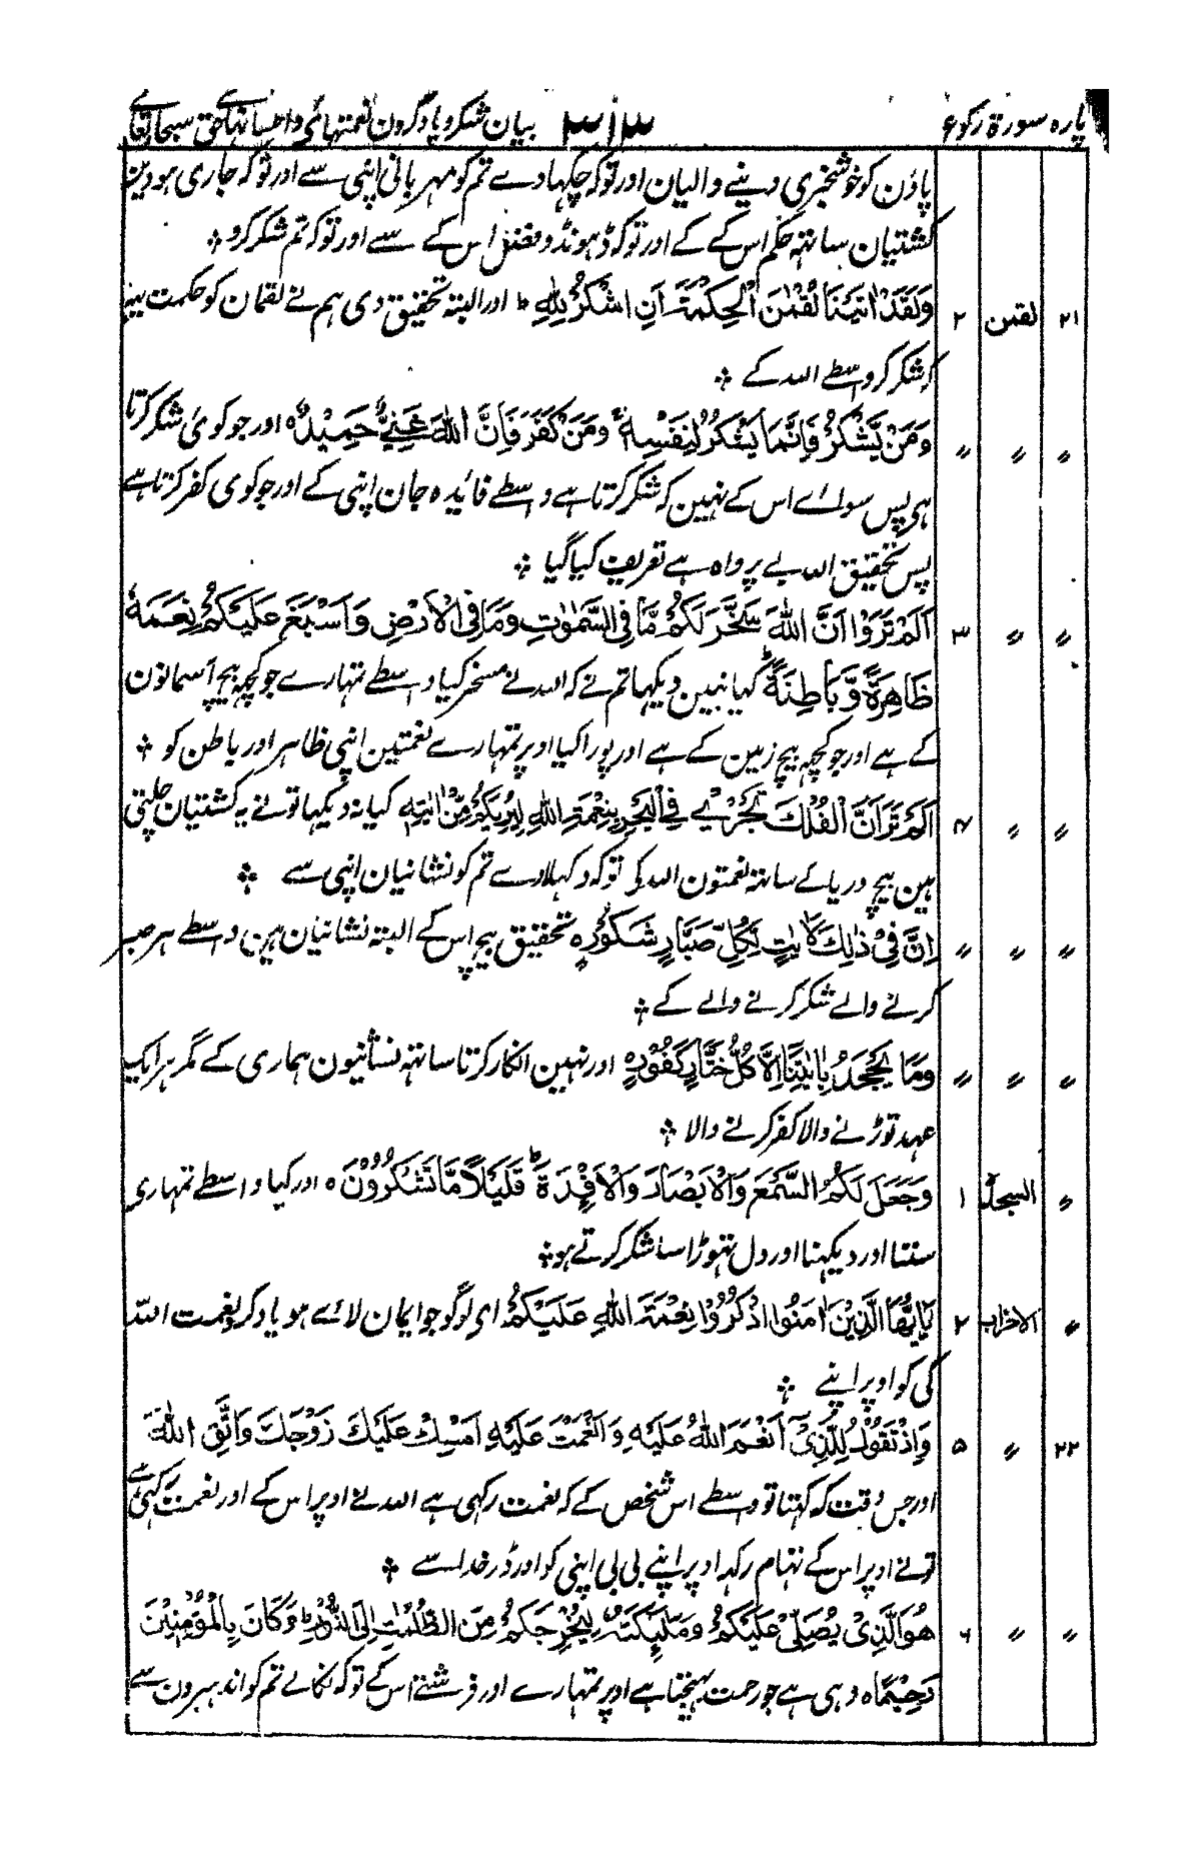 پاره سورة رکوع ۳۱۳ بیان شکر و یاد کردن نعمتہائی و احسانہائے حق سبحانہ تعالے
پاؤن کو خوشخبری دینے والیان اور توکہ چکہادے تم کو مہربانی اپنی سے اور توکہ جاری ہووین
کشتیان ساتہہ حکم اس کے کے اور توکہ ڈہونڈو فضل اس کے سے اور توکہ تم شکر کرو
۲۱ لقمن ۲ وَلَقَدْ اٰتَيْنَا لُقْمٰنَ الْحِكْمَةَ اَنِ اشْكُرْ لِلّٰهِ ط اور البتہ تحقیق دی ہم نے لقمان کو حکمت یہ
کہ شکر کر واسطے اللہ کے
〃 〃 〃 وَمَنْ يَّشْكُرْ فَاِنَّمَا يَشْكُرُ لِنَفْسِهٖ ۚ وَمَنْ كَفَرَ فَاِنَّ اللّٰهَ غَنِيٌّ حَمِيْدٌ ٥ اور جو کوئی شکر کرتا
ہی پس سوائے اس کے نہین کہ شکر کرتا ہے واسطے فائدہ جان اپنی کے اور جو کوی کفر کرتا ہے
پس تحقیق اللہ بے پرواہ ہے تعریف کیا گیا
〃 〃 ۳ اَلَمْ تَرَوْا اَنَّ اللّٰهَ سَخَّرَ لَكُمْ مَّا فِي السَّمٰوٰتِ وَمَا فِي الْاَرْضِ وَاَسْبَغَ عَلَيْكُمْ نِعَمَهٗ
ظَاهِرَةً وَّبَاطِنَةً ط کیا نہین دیکہا تم نے کہ اللہ نے مسخر کیا واسطے تمہارے جو کچہہ بیچ آسمانون
کے ہے اور جو کچہہ بیچ زمین کے ہے اور پورا کیا اوپر تمہارے نعمتین اپنی ظاہر اور باطن کو
〃 〃 ۴ اَلَمْ تَرَ اَنَّ الْفُلْكَ تَجْرِيْ فِي الْبَحْرِ بِنِعْمَةِ اللّٰهِ لِيُرِيَكُمْ مِّنْ اٰيٰتِهٖ کیا نہ دیکہا تو نے یہ کشتیان چلتی
ہین بیچ دریا کے ساتہہ نعمتون اللہ کے توکہ دکہلاوے تم کو نشانیان اپنی سے
〃 〃 〃 اِنَّ فِيْ ذٰلِكَ لَاٰيٰتٍ لِّكُلِّ صَبَّارٍ شَكُوْرٍ ٥ تحقیق بیچ اس کے البتہ نشانیان ہین واسطے ہر صبر
کرنے والے شکر کرنے والے کے
〃 〃 〃 وَمَا يَجْحَدُ بِاٰيٰتِنَا اِلَّا كُلُّ خَتَّارٍ كَفُوْرٍ ٥ اور نہین انکار کرتا ساتہہ نشانیون ہماری کے مگر ہر ایک
عہد توڑنے والا کفر کرنے والا
〃 السجدۃ ۱ وَجَعَلَ لَكُمُ السَّمْعَ وَالْاَبْصَارَ وَالْاَفْـِٕدَةَ ط قَلِيْلًا مَّا تَشْكُرُوْنَ ٥ اور کیا واسطے تمہاری
سننا اور دیکہنا اور دل تہوڑا سا شکر کرتے ہو
〃 الاحزاب ۲ يٰٓاَيُّهَا الَّذِيْنَ اٰمَنُوا اذْكُرُوْا نِعْمَةَ اللّٰهِ عَلَيْكُمْ ای لوگو جو ایمان لائے ہو یاد کرو نعمت اللہ
کی کو اوپر اپنے
۲۲ 〃 ۵ وَاِذْ تَقُوْلُ لِلَّذِيْٓ اَنْعَمَ اللّٰهُ عَلَيْهِ وَاَنْعَمْتَ عَلَيْهِ اَمْسِكْ عَلَيْكَ زَوْجَكَ وَاتَّقِ اللّٰهَ
اور جس وقت کہ کہتا تو واسطے اس شخص کے کہ نعمت رکہی ہے اللہ نے اوپر اس کے اور نعمت رکہی ہے
تو نے اوپر اس کے تہام رکہہ اوپر اپنے بی بی اپنی کو اور ڈر خدا سے
〃 〃 ۶ هُوَ الَّذِيْ يُصَلِّيْ عَلَيْكُمْ وَمَلٰٓئِكَتُهٗ لِيُخْرِجَكُمْ مِّنَ الظُّلُمٰتِ اِلَى النُّوْرِ ط وَكَانَ بِالْمُؤْمِنِيْنَ
رَحِيْمًا ٥ وہی ہے جو رحمت بہیجتا ہے اوپر تمہارے اور فرشتے اس کے توکہ نکالے تم کو اندہیرون سے